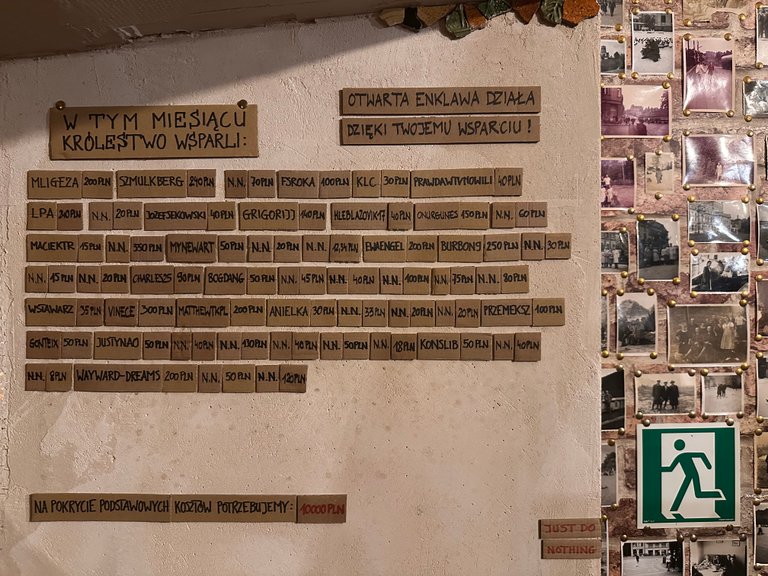 W TYM MIESIĄCU
KRÓLESTWO WSPARLI:
OTWARTA ENKLAWA DZIAŁA
DZIĘKI TWOJEMU WSPARCIU!
MLIGEZA 200PLN SZMULKBERG 240PLN N.N. 70PLN FSROKA 100PLN KLC 30PLN PRAWDAWTVMOWILI 40PLN
LPA 210PLN N.N. 20PLN JOZEFSEKOWSKI 40PLN GRIGORIJJ 140PLN HLEBLAZOVIK17 40PLN ONURGUNES 150PLN N.N. 60PLN
MACIEKTR 15PLN N.N. 350PLN MYNEWART 50PLN N.N. 20PLN N.N. 12,34PLN EWAENGEL 200PLN BURBON9 250PLN N.N. 30PLN
N.N. 15PLN N.N. 20PLN CHARLES25 90PLN BOGDANG 50PLN N.N. 45PLN N.N. 40PLN N.N. 100PLN N.N. 75PLN N.N. 80PLN
WSTAWARZ 35PLN VINECE 300PLN MATTHEWTKPL 200PLN ANIELKA 30PLN N.N. 33PLN N.N. 20PLN N.N. 20PLN PRZEMEKSZ 100PLN
GONTEIX 50PLN JUSTYNAO 50PLN N.N. 40PLN N.N. 130PLN N.N. 40PLN N.N. 50PLN N.N. 18PLN KONSLIB 50PLN N.N. 40PLN
N.N. 8PLN WAYWARD-DREAMS 200PLN N.N. 50PLN N.N. 120PLN
NA POKRYCIE PODSTAWOWYCH KOSZTÓW POTRZEBUJEMY: 10000PLN
JUST DO
NOTHING